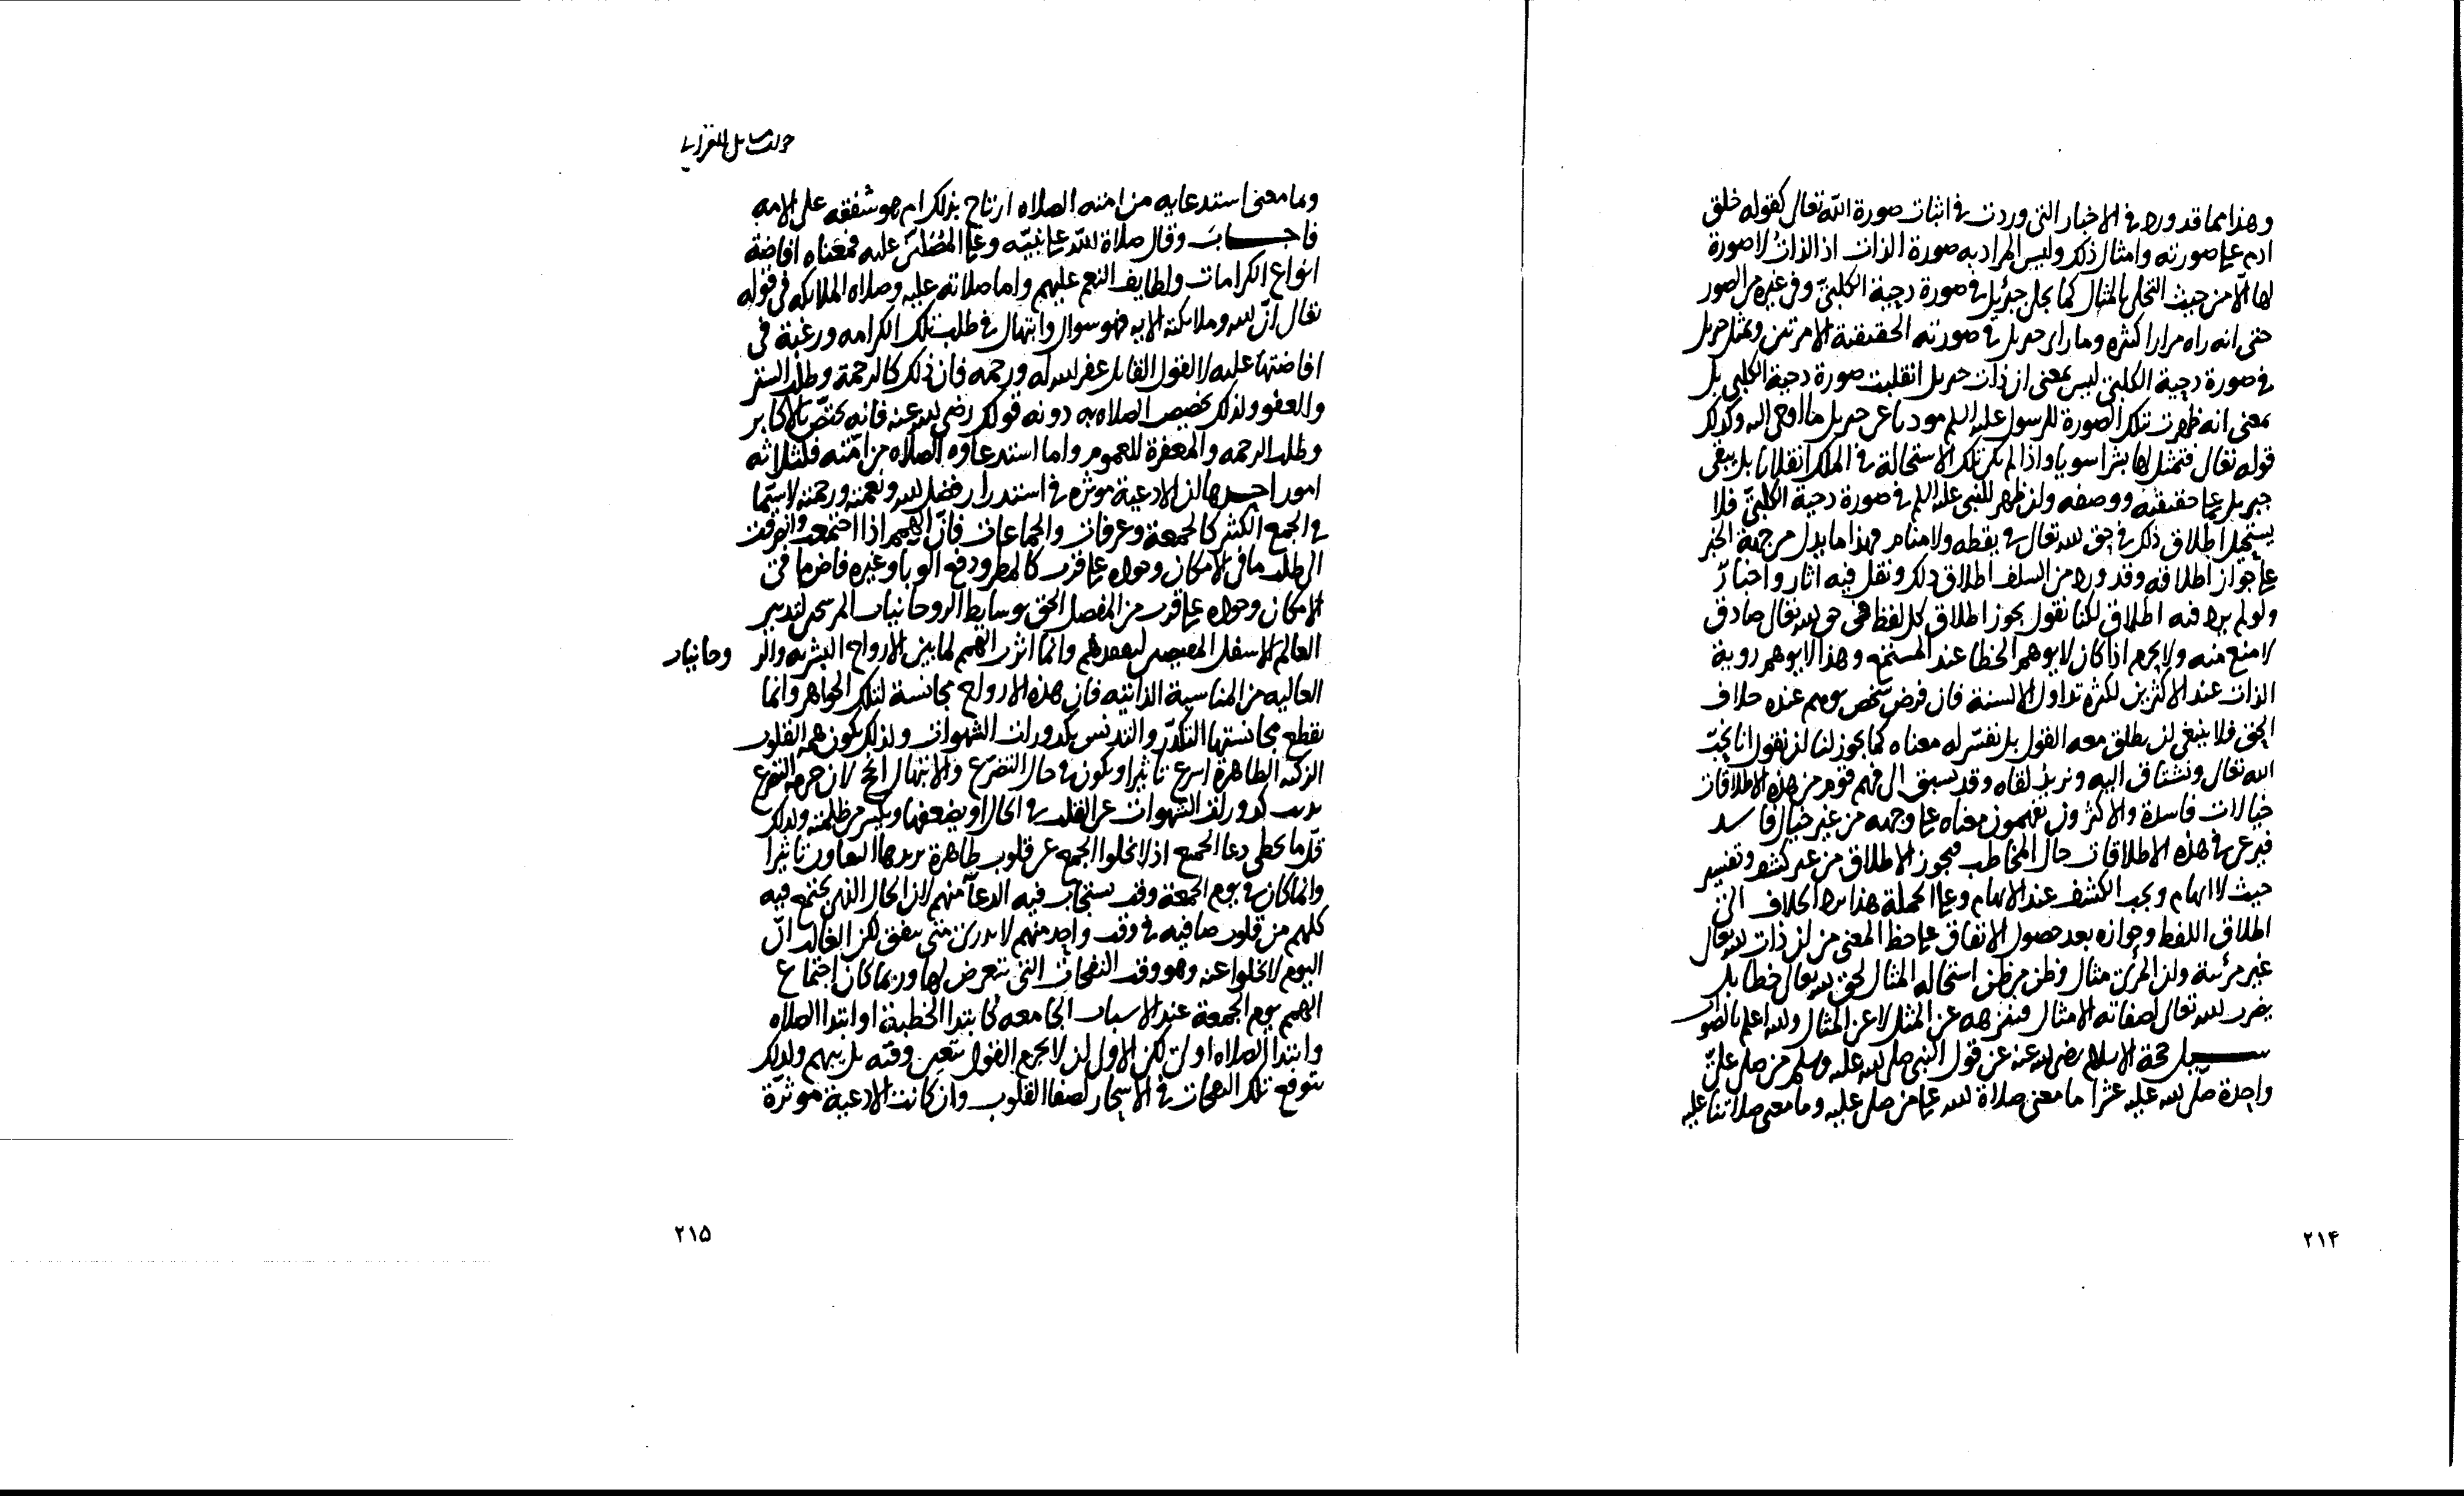 وهذا مما قد ورد في الاخبار التي وردت في اثبات صورة الله تعالى كقوله خلق
ادم على صورته وامثال ذلك وليس المراد به صورة الذات اذ الذات لا صورة
لها الا من حيث التجلي بالمثال كما تجلى جبرئيل في صورة دحية الكلبي وفي غيره من الصور
حتى انه راه مرارا كثيره وما راى جبريل في صورته الحقيقية الا مرتين وتمثل جبريل
في صورة دحية الكلبي ليس بمعنى ان ذات جبريل انقلبت صورة دحية الكلبي بل
بمعنى انه ظهرت تلك الصورة للرسول عليه السلم موديا عن جبريل ما اوحى اليه وكذلك
قوله تعالى فتمثل لها بشرا سويا واذا لم تكن تلك الاستحالة في الملك انقلابا بل يبقى
جبريل على حقيقته ووصفه وان ظهر للنبي عليه السلم في صورة دحية الكلبي فلا
يستحيل اطلاق ذلك في حق الله تعالى في يقظه ولا منام فهذا ما يدل من جهة الخبر
على جواز اطلاقه وقد ورد من السلف اطلاق ذلك ونقل فيه اثار واخبار
ولو لم يرد فيه اطلاق لكنا نقول يجوز اطلاق كل لفظ في حق الله تعالى صادق
لا منع منه ولا يحرم اذا كان لا يوهم الخطا عند المستمع وهذا لا يوهم روية
الذات عند الاكثرين لكثرة تداول الالسنة فان فرض شخص يوهم عنده خلاف
الحق فلا ينبغي ان يطلق معه القول بل نفسر له معناه كما يجوز لنا ان نقول انا نحب
الله تعالى ونشتاق اليه ونريد لقاه وقد يسبق الى فهم قوم من هذه الاطلاقات
خيالات فاسدة والاكثرون يفهمون معناه على وجهه من غير خيال فاسد
فيرعى في هذه الاطلاقات حال المخاطب فيجوز الاطلاق من غير كشف وتفسير
حيث لا ابهام ويجب الكشف عند الابهام وعلى الجملة هذا يرد الخلاف الى
اطلاق اللفظ وجوازه بعد حصول الاتفاق على حظ المعنى من ان ذات الله تعالى
غير مرئية وان المرئي مثال وظن من ظن استحالة المثال لحق الله تعالى خطا بل
يضرب الله تعالى لصفاته الامثال وننزهه عن المثل لا عن المثال والله اعلم بالصواب
سيل حجة الاسلام رضي الله عنه عن قول النبي صلى الله عليه وسلم من صلى علي
واحدة صلى الله عليه عشرا ما معنى صلاة الله على من صلى عليه وما معنى صلاتنا عليه
٢١۴
وما معنى استدعايه من امته الصلاه ارتاح بذلك ام هو شفقه على الامه
فاجاب وقال صلاة الله على نبيه وعلى المصلين عليه فمعناه افاضة
انواع الكرامات ولطايف النعم عليهم واما صلاتنا عليه وصلاه الملائكه في قوله
تعالى ان الله وملائكته الايه فهو سوال وابتهال في طلب تلك الكرامه ورغبة في
افاضتها عليه لا لقول القايل غفر الله له ورحمه فان ذلك كالرحمة وطلب الستر
والعفو ولذلك تخصص الصلاه به دونه قولك رضي الله عنه فانه يختص بالاكابر
وطلب الرحمه والمغفرة للعموم واما استدعاوه الصلاه من امته فلثلاثه
امور احدها ان الادعية موثره في استدرار فضل الله ونعمته ورحمته لا سيما
في الجمع الكثير كالجمعة وعرفات والجماعات فان الهمم اذا اجتمعت وانصرفت
الى طلب ما في الامكان وجوده على قرب كالمطر ودفع الوبا وغيره فاض ما في
الامكان وجوده على قرب من المفضل الحق بوسايط الروحانيات المرشحين لتدبير
العالم الاسفل وانما اثرت الهمم لما بين الارواح البشريه والروحانيات
العاليه من المناسبة الذاتيه فان هذه الارواح مجانسة لتلك الجواهر وانما
يقطع مجانستها التكدر والتدنس بكدورات الشهوات ولذلك يكون همم القلوب
الزكيه الطاهرة اسرع تاثيرا ويكون في حال التضرع والابتهال انجح لان حرقة التضرع
تذيب كدورات الشهوات عن القلب في الحال او يضعفها ويكسر من ظلمته ولذلك
قل ما يخطى دعا الجميع اذ لا تخلوا الجمع عن قلوب طاهرة يزيدها التعاون تاثيرا
وانما كان في يوم الجمعة وقت يستجاب فيه الدعا منهم لان الحال الذي يجتمع فيه
كلهم من قلوب صافيه في وقت واحد منهم لا يدري متى يتفق لكن الغالب ان
اليوم لا يخلوا عنه وهو وقت النفحات التي نتعرض لها وربما كان اجتماع
الهمم يوم الجمعة عند الاسباب الجامعه كابتدا الخطبة او ابتدا الصلاه
وابتدا الصلاه اولى لكن الاول ان لا يحرم القول بتعين وقته بل يبهم ولذلك
يتوقع تلك النفحات في الاسحار لصفا القلوب وان كانت الادعية موثرة
٢١۵